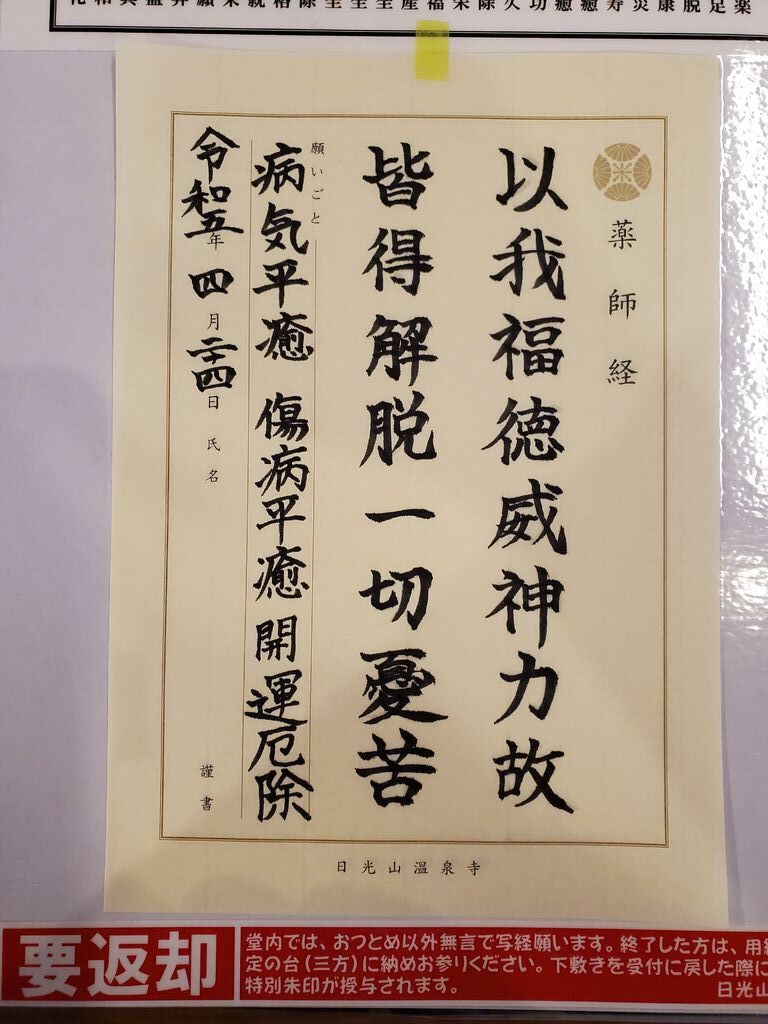 薬師経
以我福徳威神力故
皆得解脱一切憂苦
願いごと
病気平癒 傷病平癒 開運厄除
令和五年四月二十四日 氏名
謹書
日光山温泉寺
要返却
堂内では、おつとめ以外無言で写経願います。終了した方は、用
定の台(三方)に納めお参りください。下敷きを受付に戻した際に
特別朱印が授与されます。 日光山